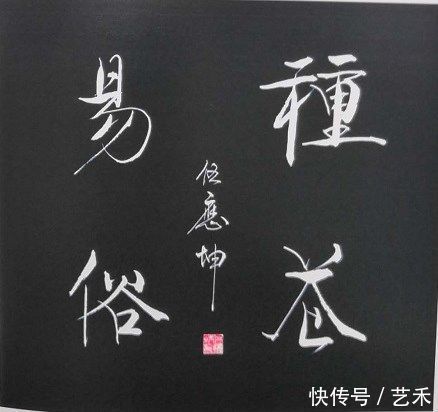 種花
易俗
任應坤
快传号 / 艺禾